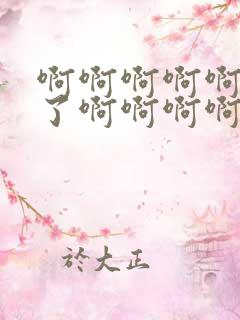 啊啊啊啊啊
了啊啊啊啊
於大正